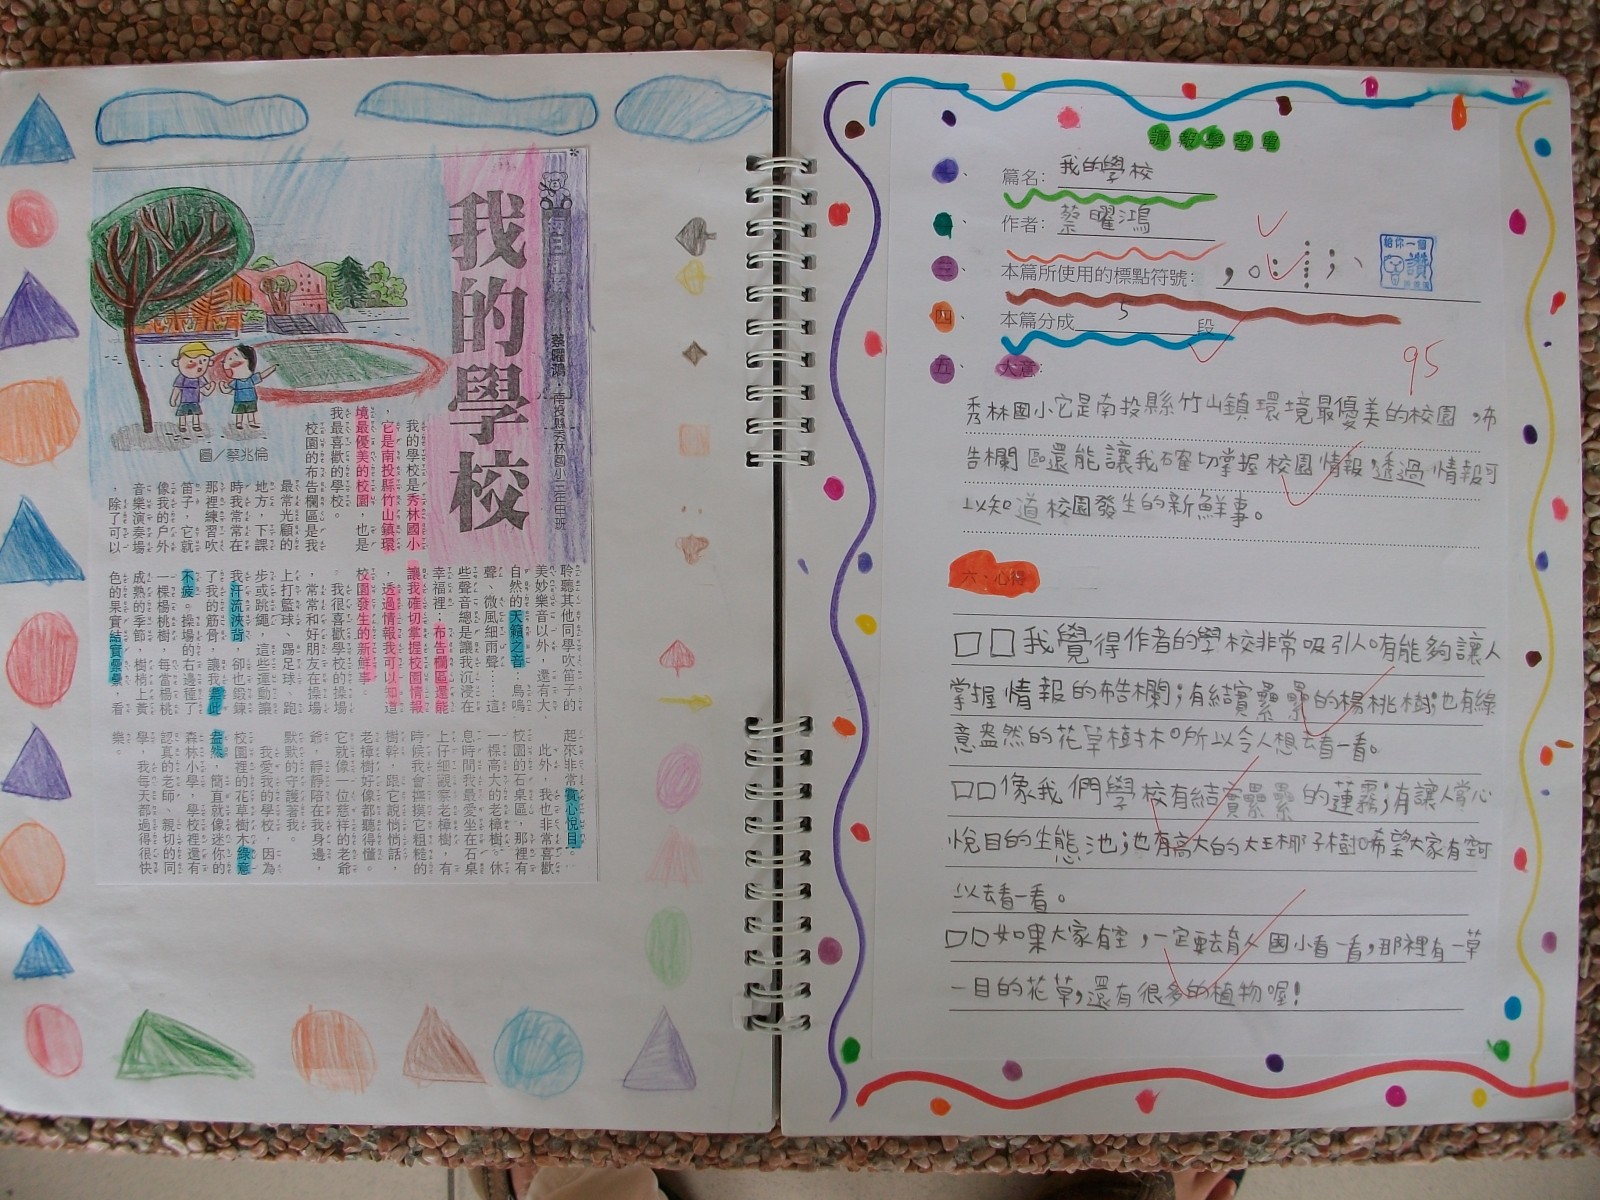 我的學校
蔡曜鴻．南投縣秀林國小二年甲班
圖／蔡兆倫
我的學校是秀林國小
，它是南投縣竹山鎮環
境最優美的校園，也是
我最喜歡的學校。
校園的布告欄區是我
最常光顧的
地方，下課
時我常常在
那裡練習吹
笛子，它就
像我的戶外
音樂演奏場
，除了可以
聆聽其他同學吹笛子的
美妙樂音以外，還有大
自然的天籟之音：鳥鳴
聲、微風細雨聲……這
些聲音總是讓我沉浸在
幸福裡；布告欄區還能
讓我確切掌握校園情報
，透過情報我可以知道
校園發生的新鮮事。
我很喜歡學校的操場
，常常和好朋友在操場
上打籃球、踢足球、跑
步或跳繩，這些運動讓
我汗流浹背，卻也鍛鍊
了我的筋骨，讓我樂此
不疲。操場的右邊種了
一棵楊桃樹，每當楊桃
成熟的季節，樹梢上黃
色的果實結實纍纍，看
起來非常賞心悅目。
此外，我也非常喜歡
校園的石桌區，那裡有
一棵高大的老樟樹。休
息時間我最愛坐在石桌
上仔細觀察老樟樹，有
時候我會撫摸它粗糙的
樹幹，跟它說悄悄話，
老樟樹好像都聽得懂。
它就像一位慈祥的老爺
爺，靜靜陪在我身邊，
默默的守護著我。
我愛我的學校，因為
校園裡的花草樹木綠意
盎然，簡直就像迷你的
森林小學，學校裡還有
認真的老師、親切的同
學，我每天都過得很快
樂。
讀報學習單
一、篇名：我的學校
二、作者：蔡曜鴻
三、本篇所使用的標點符號：，。：……；、
給你一個
讚
四、本篇分成 5 段
95
五、大意：
秀林國小它是南投縣竹山鎮環境最優美的校園，布
告欄區還能讓我確切掌握校園情報，透過情報可
以知道校園發生的新鮮事。
六、心得
□□我覺得作者的學校非常吸引人。有能夠讓人
掌握情報的布告欄；有結實纍纍的楊桃樹；也有綠
意盎然的花草樹木。所以令人想去看一看。
□□像我們學校有結實纍纍的蓮霧；有讓人賞心
悅目的生態池；也有高大的大王椰子樹。希望大家有空可
以去看一看。
□□如果大家有空，一定要去育人國小看一看，那裡有一草
一目的花草，還有很多的植物喔！